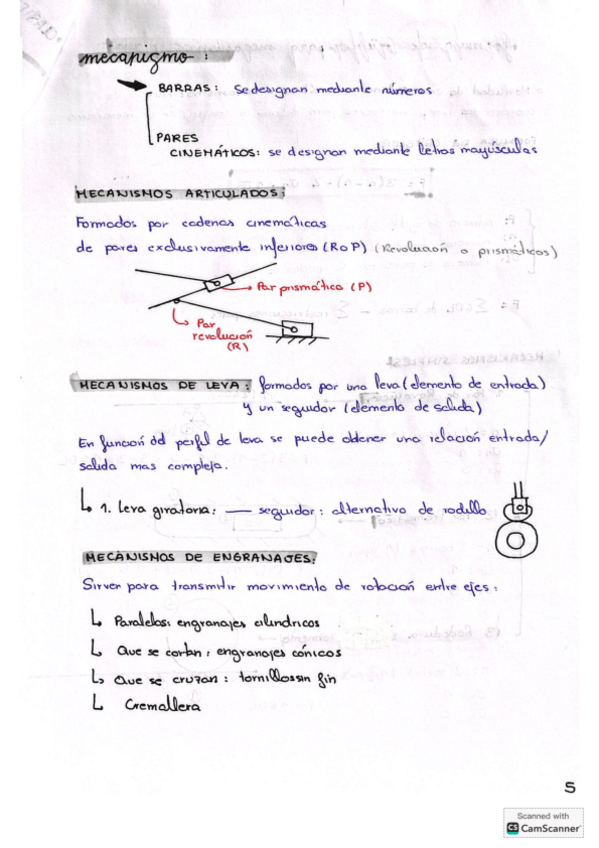 mecanismo:
BARRAS: se designan mediante números
PARES
CINEMÁTICOS: se designan mediante letras mayúsculas
MECANISMOS ARTICULADOS:
Formados por cadenas cinemáticas
de pares exclusivamente inferiores (R o P) (Revolución o prismáticos)
Par prismático (P)
Par
revolución
(R)
MECANISMOS DE LEVA: formados por una leva (elemento de entrada)
y un seguidor (elemento de salida)
En función del perfil de leva se puede obtener una relación entrada/
salida mas compleja.
1. Leva giratoria: — seguidor: alternativo de rodillo
MECÁNISMOS DE ENGRANAJES:
Sirven para transmitir movimiento de rotación entre ejes:
Paralelos: engranajes cilindricos
Que se cortan: engranajes cónicos
Que se cruzan: tornillos sin fin
Cremallera
5
Scanned with
CS CamScanner